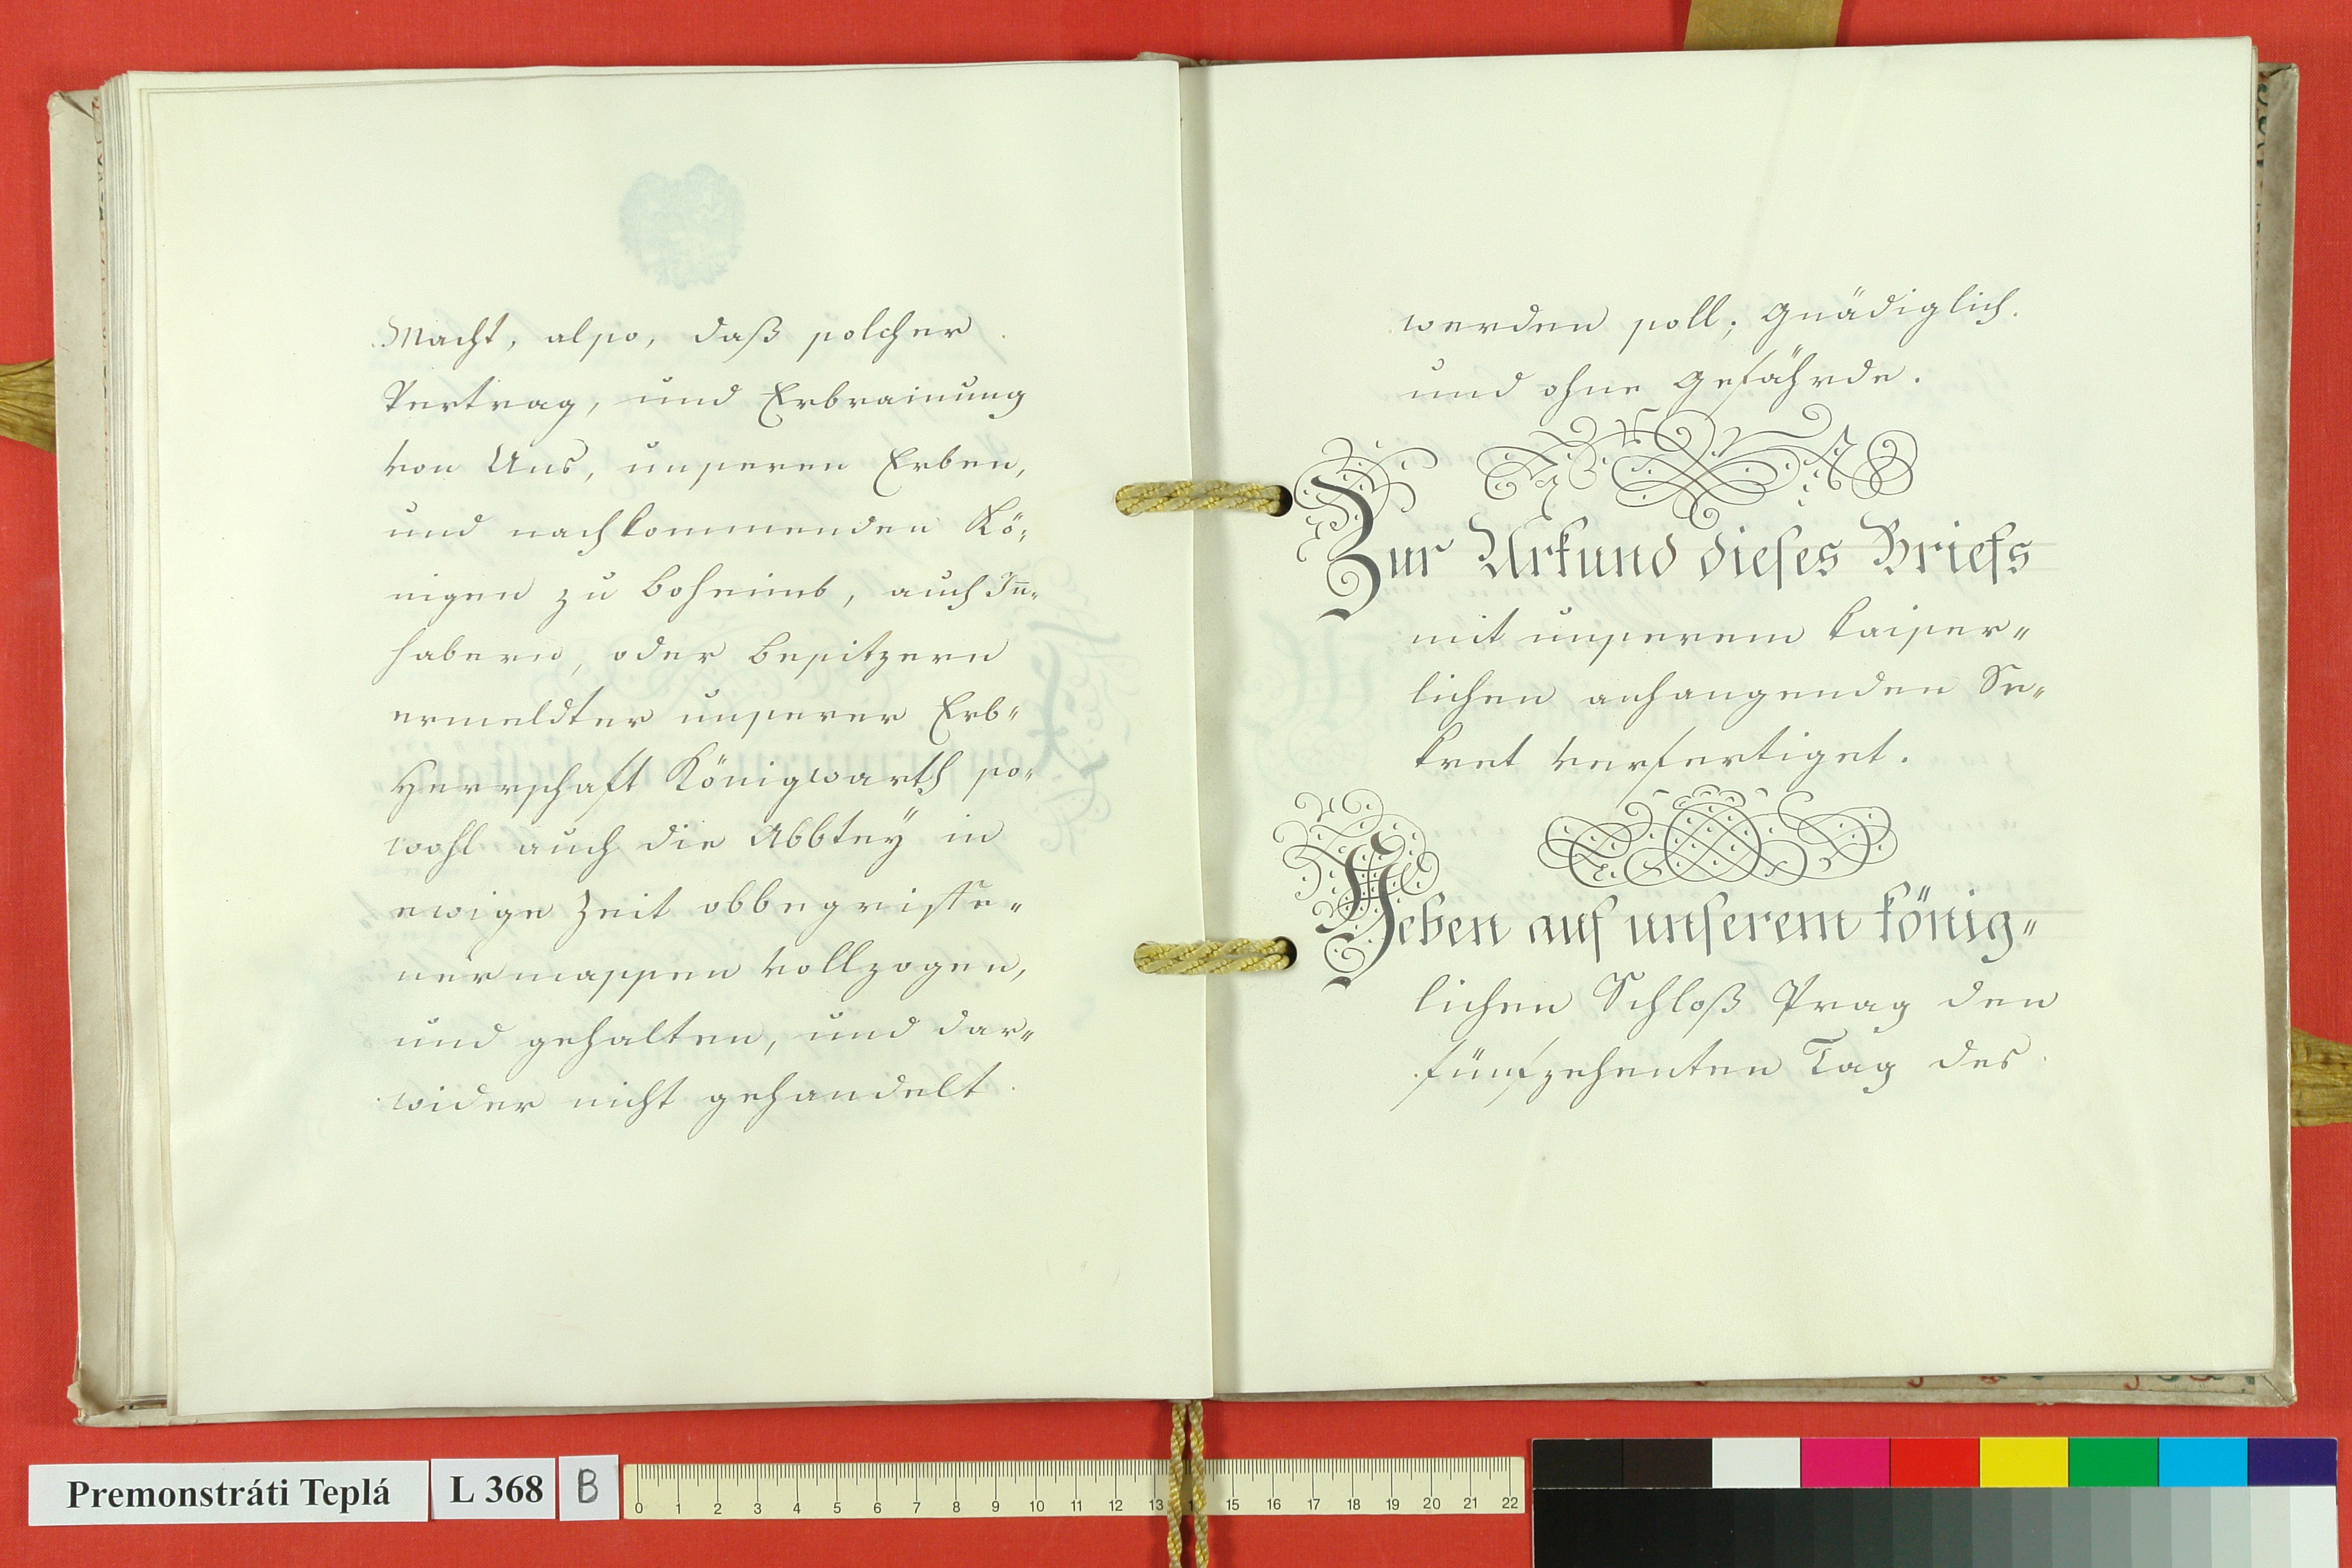 Macht, also, daß solcher
Vertrag, und Erbrainung
von Uns, unseren Erben,
und nachkommenden Kö-
nigen zu Boheimb, auch In̅-
habern, oder Besitzern
ermeldter unserer Erb-
Herrschaft Königwarth so-
wohl auch die Abbtey in
ewige Zeit obbegriffe-
nermassen vollzogen,
und gehalten, und dar-
wider nicht gehandelt
werden soll; Gnädiglich
und ohne Gefährde.
Zur Urkund dieses Briefs
mit unserem kaiser-
lichen anhangenden Se-
kret verfertiget.
Geben auf unserem könig-
lichen Schloß Prag den
fünfzehenten Tag des
Premonstráti Teplá L 368 B
0 1 2 3 4 5 6 7 8 9 10 11 12 13 15 16 17 18 19 20 21 22